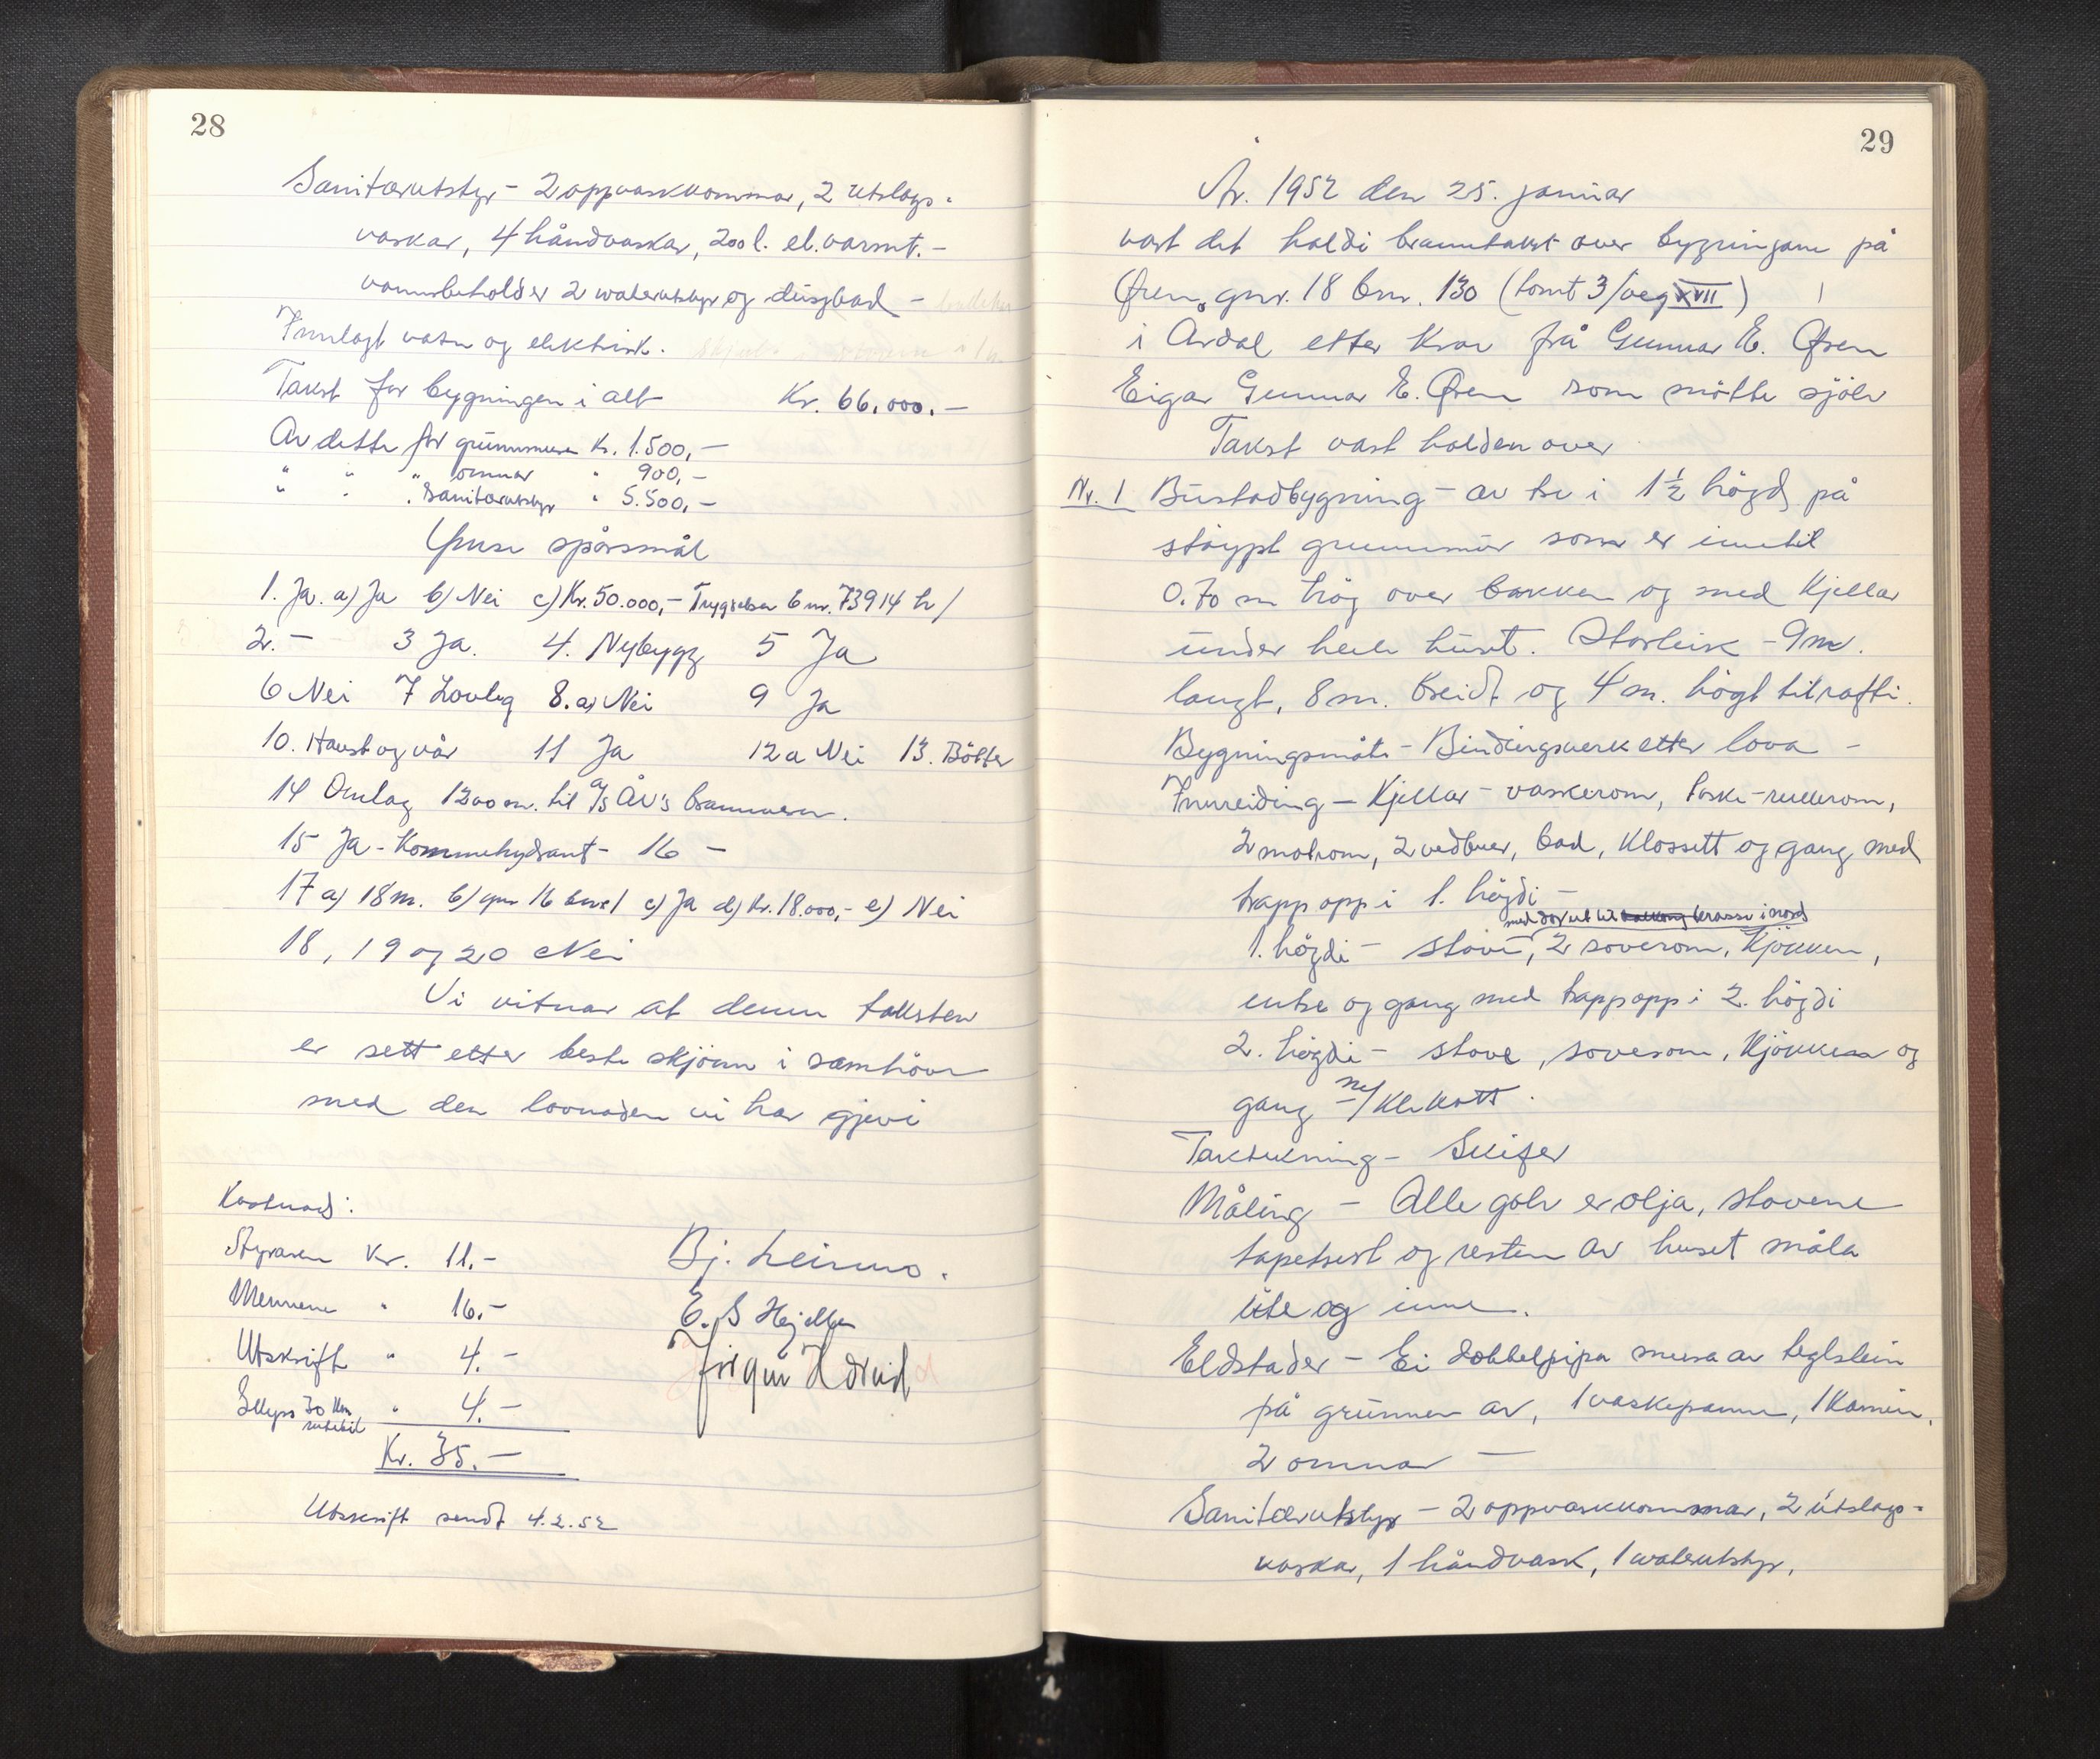 28
Sanitærutstyr - 2 oppvaskkommar, 2 utslags-
vaskar, 4 håndvaskar, 200 l. el. varmt.-
vannsbeholder 2 waterutstyr og dusjbad -
Innlagt vatn og elektrisk.
Takst for bygningen i alt Kr. 66.000.-
Av dette for grunnmuren Kr. 1.500,-
" " " omnar " 900,-
" " " Sanitærutstyr " 5.500,-
Ymse spørsmål
1. Ja. a) Ja b) Nei c) Kr. 50.000,- Trygdelsen 6 nr. 73914 h/
2. - 3 Ja. 4. Nybygg 5 Ja
6 Nei 7 Lovleg 8. a) Nei 9 Ja
10. Haust og vår 11 Ja 12 a Nei 13. Bøtter
14 Omlag 1200 m. til a/s ÅV's brannvern.
15 Ja - Kommehydrant - 16 -
17 a) 18 m. b) gnr 16 bnr 1 c) Ja d) Kr. 18.000,- e) Nei
18, 19 og 20 Nei
Vi vitnar at denne taksten
er sett etter beste skjönn i samhöve
med den lovnaden vi har gjevi
Kostnad:
Styraren Kr. 11.- Bj. Leirmo.
Mennene " 16.- E. S Hjelle
Utskrift " 4.-
Skyss 30 km " 4.-
rutebil
Kr. 35.-
Utskrift sendt 4.2.52
29
År. 1952 den 25. januar
vart det haldi branntakst over bygningane på
Øren, gnr. 18 bnr. 130 (tomt 3/veg XVII)
i Årdal etter krav frå Gunnar E. Øren
Eigar Gunnar E. Øren som møtte sjölv
Takst vart halden over
Nr. 1 Bustadbygning - av tre i 1 1/2 högd på
stöypt grunnmur som er inntil
0.70 m hög over bakken og med kjellar
under heile huset. Storleik - 9 m.
langt, 8 m. breidt og 4 m. högt til rafti.
Bygningsmåte - Bindingsverk etter lova -
Innreiding - Kjellar - vaskerom, tørke-rullerom,
2 matrom, 2 vedbuer, bad, klossett og gang med
trapp opp i 1. högdi -
med dør ut til balkong terasse i nord
1. högdi - stove, 2 soverom, kjökken,
entre og gang med trapp opp i 2. högdi
2. högdi - stove, soverom, kjökken og
gang m/ kl.kott.
Taktekning - Skifer
Måling - Alle golv er olja, stovene
tapetsert og resten av huset måla
ute og inne.
Eldstader - Ei dobbelpipa mura av teglstein
på grunnen av, 1 vaskepanne, 1 kamin,
2 omnar -
Sanitærutstyr - 2 oppvaskkommar, 2 utslags-
vaskar, 1 håndvask, 1 waterutstyr,